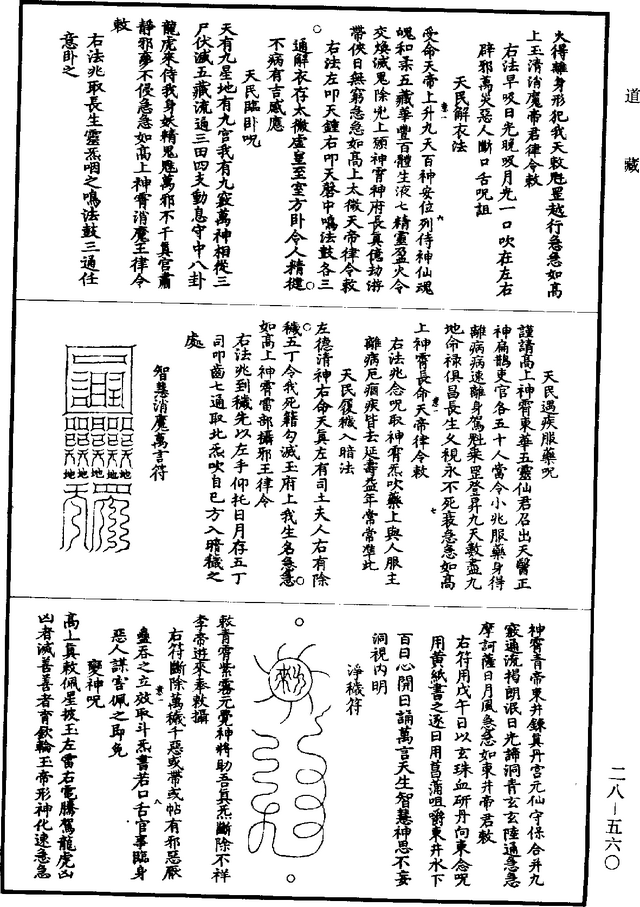 道藏
火得離身形犯我天敕魁罡越行急急如高
上玉清消魔帝君律令敕
右法早吸日光晚吸月光一口吹在左右
辟邪萬災惡人斷口舌呪詛
天民解衣法
受命天帝上昇九天百神安位列侍神仙魂
魄和柔五藏華豐百體生液七精靈盈火令
交煥滅鬼除兇上願神霄神府長真億劫遊
帶俠日無窮急急如高上太微天帝律令敕
右法左叩天鍾右叩天磬中鳴法鼓各三
通解衣存太微虛皇至室方卧令人精健
不病有吉感應
天民臨卧呪
天有九星地有九宮我有九竅萬神相從三
尸伏滅五藏流通三田四支動息守中八卦
龍虎來侍我身妖精鬼魁萬邪不干真官肅
靜邪夢不侵急急如高上神霄消魔王律令
敕
右法兆取長生靈炁咽之鳴法鼓三通任
意卧之
天民遇疾服藥呪
謹請高上神霄東華五靈仙君召出天醫正
神扁鵲吏官各五十人當令小兆服藥身得
離病病速離身駕魁乘罡登昇九天敕盡九
地命祿俱昌長生久視永不死衰急急如高
上神霄長命天帝律令敕
右法兆念呪取神霄炁吹藥上與人服主
離病厄痼疾皆去延壽益年常常準此
天民復穢入暗法
左德清神右命天真左有司土夫人右有除
穢五丁令我死籍勾滅玉府上我生名急急
如高上神霄雷部攝邪王律令
右法兆到穢先以左手仰托日月存五丁
司叩齒七通取北炁吹自己方入暗穢之
處
智慧消魔萬言符
神霄青帝東井鍊真丹宮元仙守保合幷九
竅通流揭朗泯日光諦洞青玄玄陸通急急
摩訶薩日月風急急如東井帝君敕
右符用戊午日以玄珠血研丹向東念呪
用黃紙書之逐日用菖蒲咀嚼東井水下
百日心開日誦萬言天生智慧神思不妄
洞視內明
淨穢符
敕青霄紫霧元覺神將助吾真炁斷除不祥
李帝進來奉敕攝
右符斷除萬穢千惡或帶或帖有邪惡厭
蠱吞之立效取斗炁書若口舌官事臨身
惡人謀害佩之即免
變神呪
高上真敕佩星披玉左雷右電騰駕龍虎凶
凶者滅善善者育欽輪玉帝形神化速急急
二八－五六〇